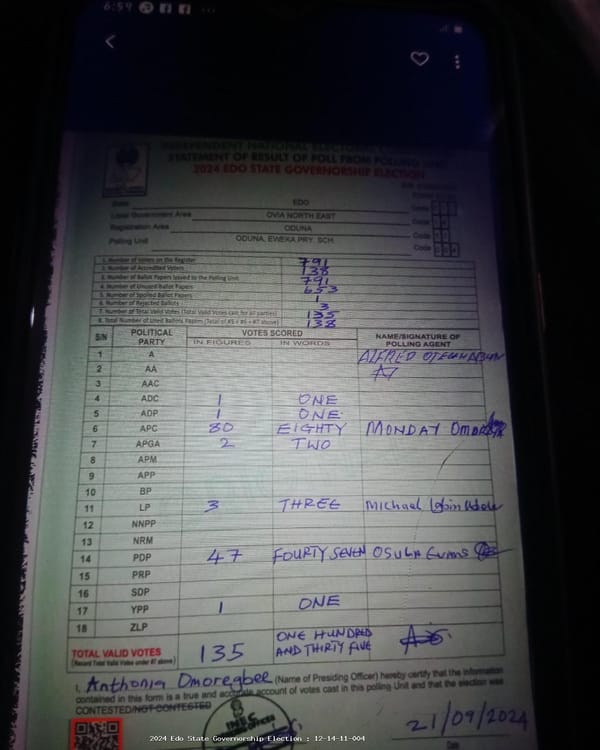 6:59
INDEPENDENT NATIONAL ELECTORAL
STATEMENT OF RESULT OF POLL FROM POLLING UNIT
2024 EDO STATE GOVERNORSHIP ELECTION
State EDO
Local Government Area OVIA NORTH EAST Code
Registration Area ODUNA Code
Polling Unit ODUNA, EWEKA PRY. SCH. Code
1. Number of Voters on the Register 791
2. Number of Accredited Voters 138
3. Number of Ballot Papers Issued to the Polling Unit 791
4. Number of Unused Ballot Papers 653
5. Number of Spoiled Ballot Papers 1
6. Number of Rejected Ballots 3
7. Number of Total Valid Votes (Total Valid Votes cast for all parties) 135
8. Total Number of Used Ballots Papers (Total of #5 + #6 + #7 above) 138
S/N POLITICAL PARTY VOTES SCORED NAME/SIGNATURE OF POLLING AGENT
IN FIGURES IN WORDS
1 A ALFRED
2 AA
3 AAC
4 ADC 1 ONE
5 ADP 1 ONE
6 APC 80 EIGHTY MONDAY
7 APGA 2 TWO
8 APM
9 APP
10 BP
11 LP 3 THREE Michael
12 NNPP
13 NRM
14 PDP 47 FOURTY SEVEN OSULA EVANS
15 PRP
16 SDP
17 YPP 1 ONE
18 ZLP
TOTAL VALID VOTES 135 ONE HUNDRED AND THIRTY FIVE
(Record Total Valid Votes under #7 above)
I, Anthonia Omoregbee (Name of Presiding Officer) hereby certify that the information
contained in this form is a true and accurate account of votes cast in this polling Unit and that the election was
CONTESTED/NOT CONTESTED
21/09/2024
2024 Edo State Governorship Election : 12-14-11-004